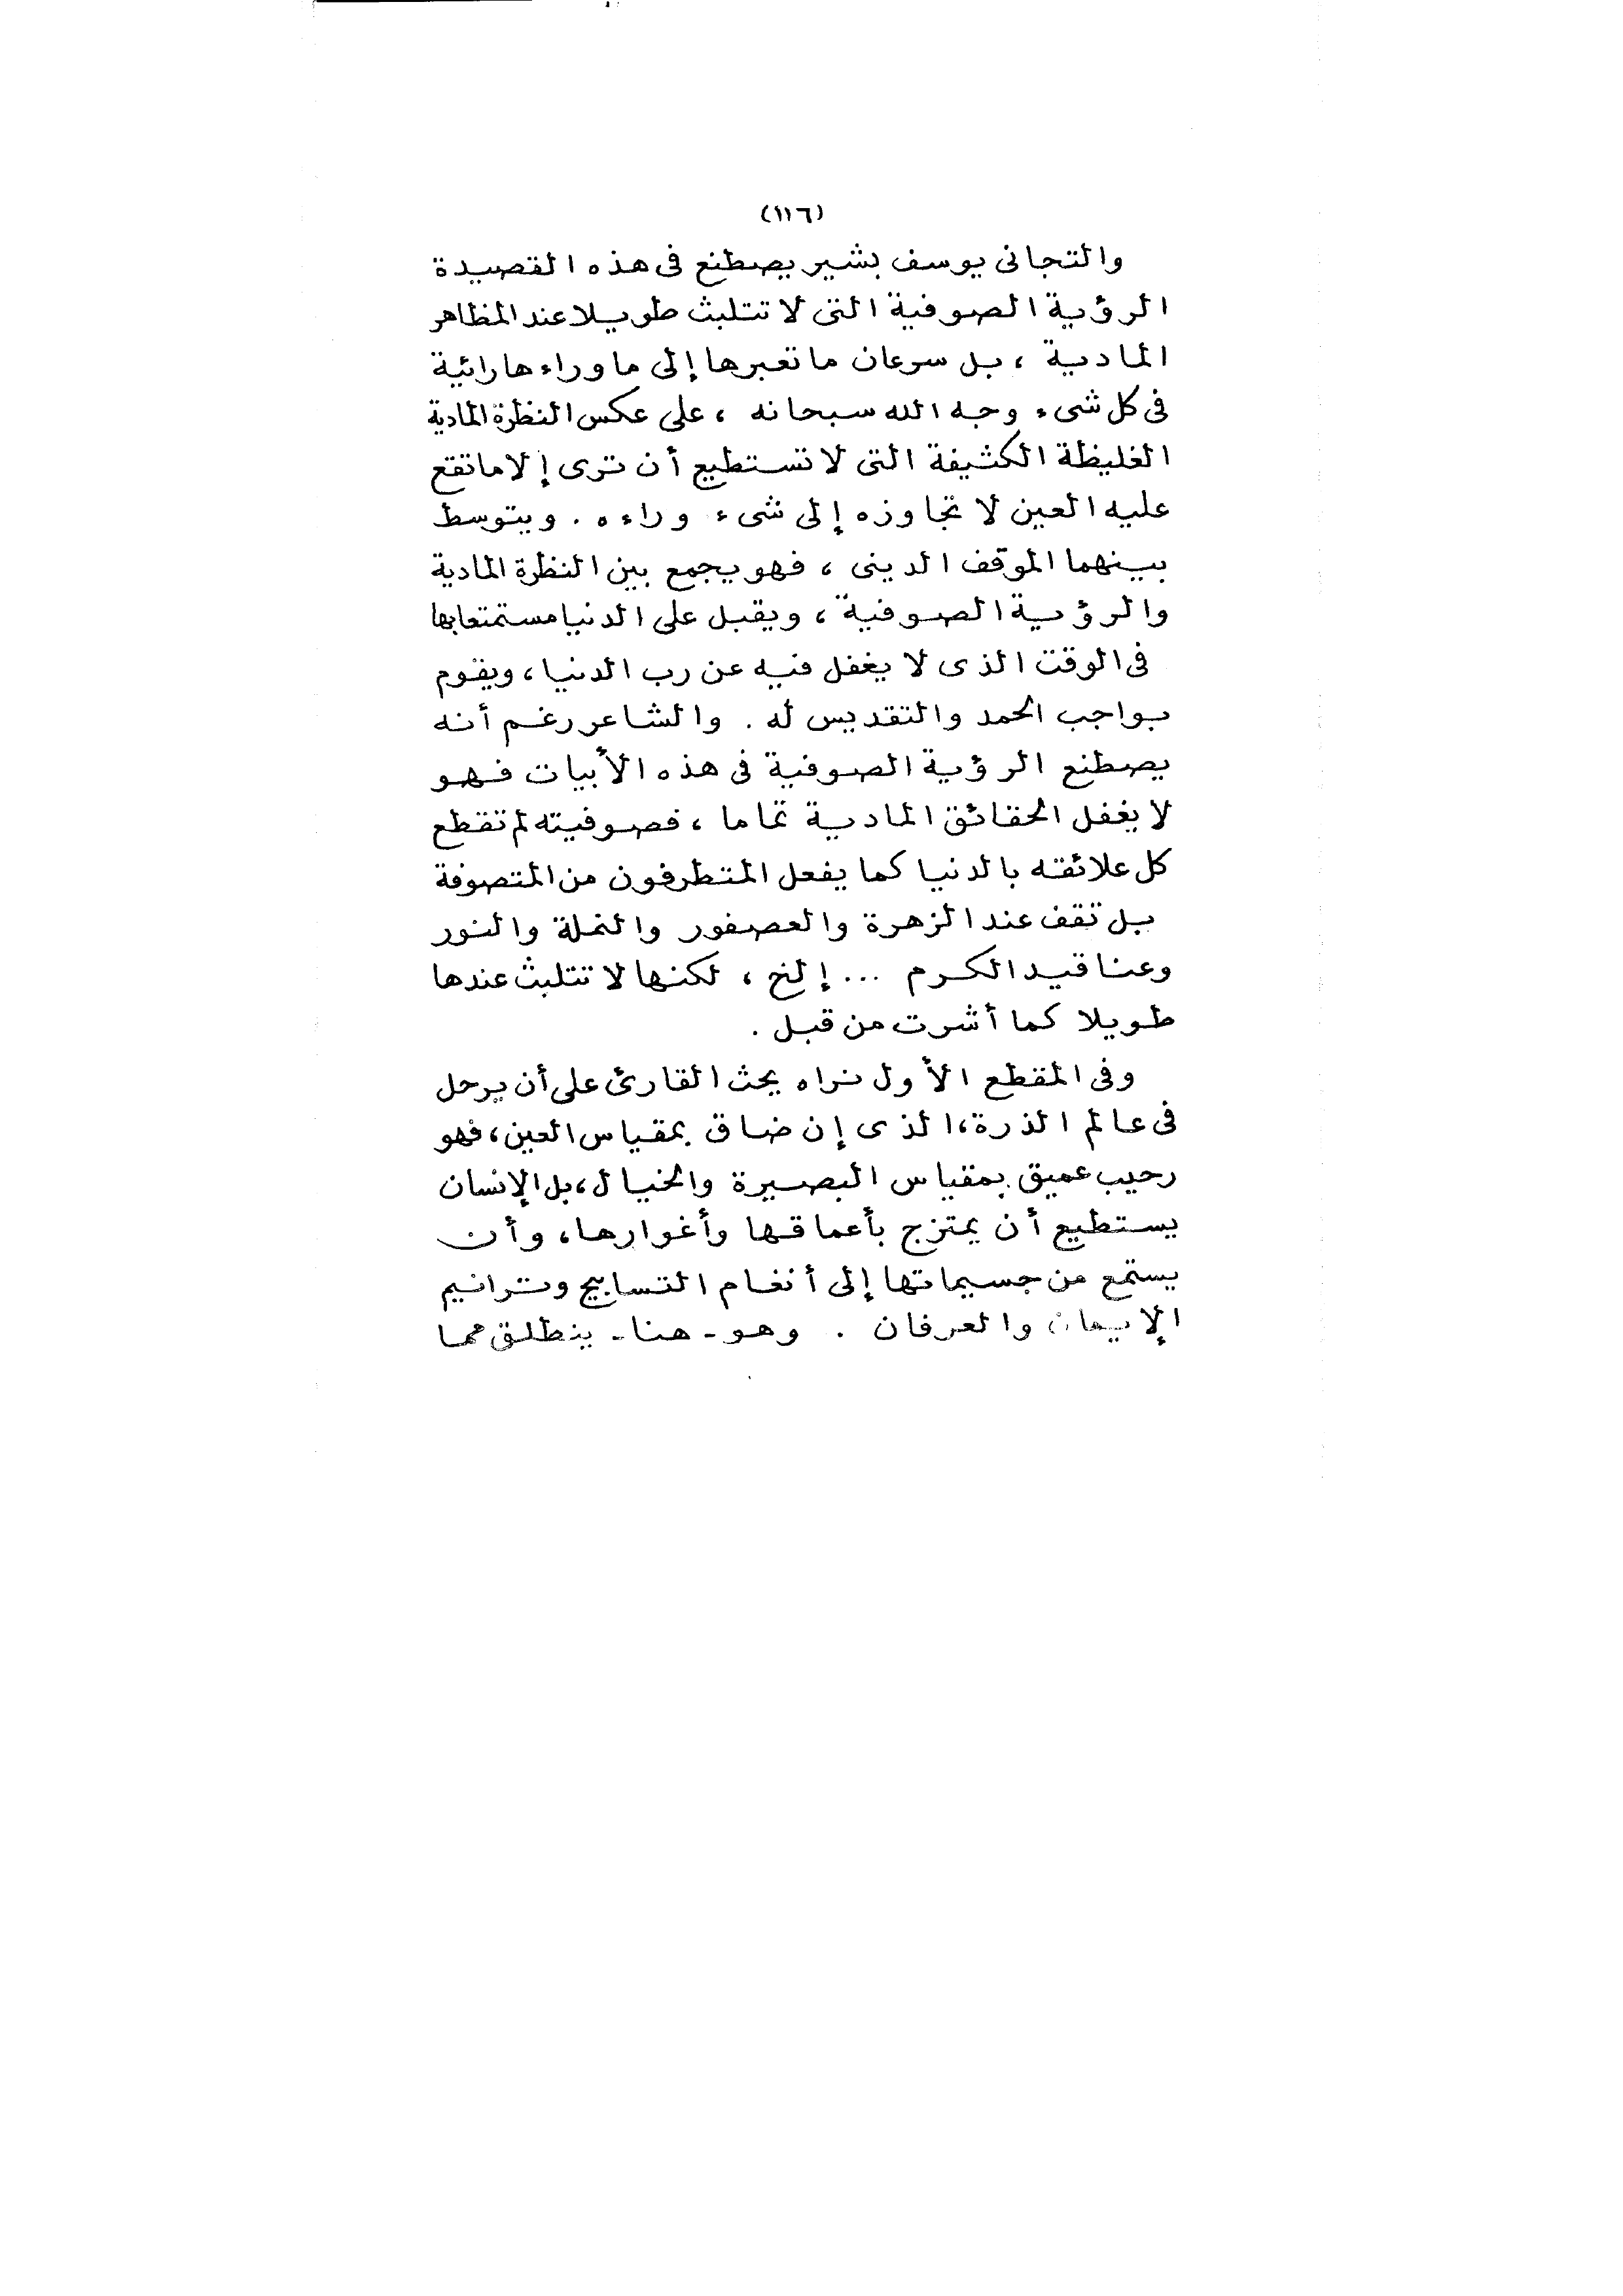 (١١٦)
والتجانى يوسف بشير يصطنع فى هذه القصيدة
الرؤية الصوفية التى لا تتلبث طويلا عند المظاهر
المادية ، بل سرعان ما تعبرها إلى ما وراءها رائية
فى كل شىء وجه الله سبحانه ، على عكس النظرة المادية
الغليظة الكثيفة التى لا تستطيع أن ترى إلا ما تقع
عليه العين لا تجاوزه إلى شىء وراءه . ويتوسط
بينهما الموقف الدينى ، فهو يجمع بين النظرة المادية
والرؤية الصوفية ، ويقبل على الدنيا مستمتعا بها
فى الوقت الذى لا يغفل فيه عن رب الدنيا ، ويقوم
بواجب الحمد والتقديس له . والشاعر رغم أنه
يصطنع الرؤية الصوفية فى هذه الأبيات فهو
لا يغفل الحقائق المادية تماما ، فصوفيته لم تقطع
كل علائقه بالدنيا كما يفعل المتطرفون من المتصوفة
بل تقف عند الزهرة والعصفور والنملة والنور
وعناقيد الكرم ... إلخ ، لكنها لا تتلبث عندها
طويلا كما أشرت من قبل .
وفى المقطع الأول نراه يحث القارئ على أن يرحل
فى عالم الذرة ، الذى إن ضاق بمقياس العين ، فهو
رحيب عميق بمقياس البصيرة والخيال ، بل الإنسان
يستطيع أن يمتزج بأعماقها وأغوارها ، وأن
يستمع من جسيماتها إلى أنغام التسابيح وترانيم
الإيمان والعرفان . وهو - هنا - ينطلق مما